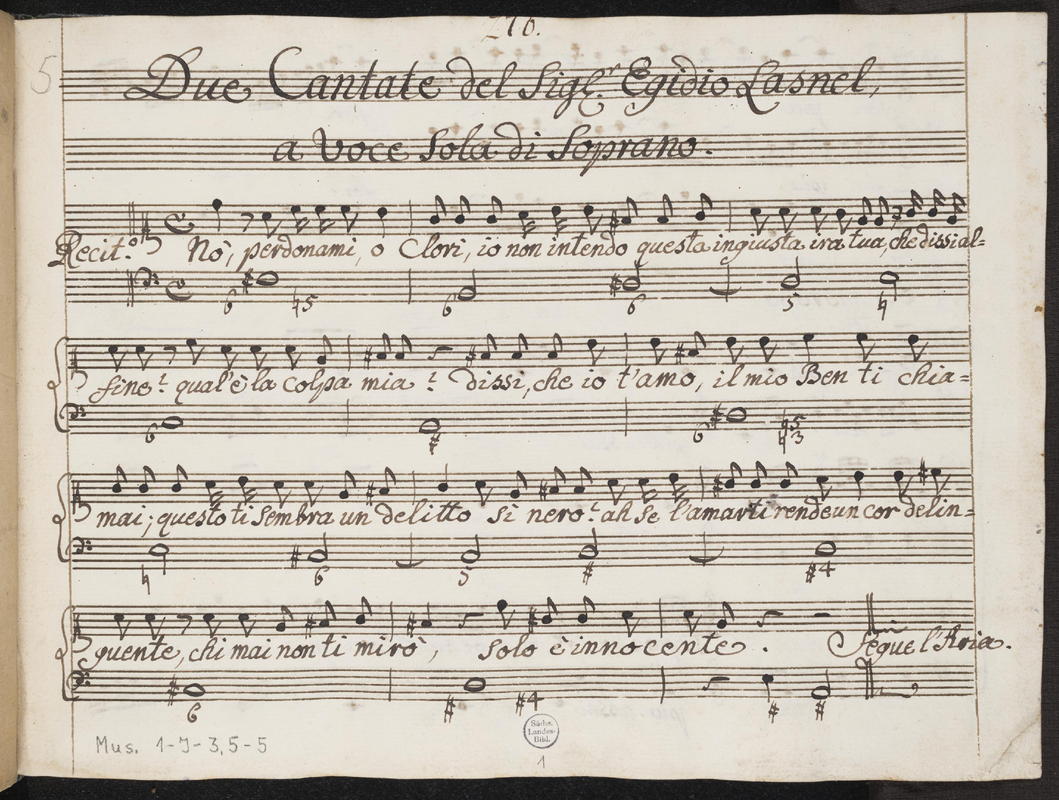 276.
5
Due Cantate del Sigl.r Egidio Lasnel,
a Voce Sola di Soprano.
Recit.o Nò, perdonami, o Clori, io non intendo questa ingiusta ira tua, che dissi al=
6 ♮5 6 6 5 ♮
fine? qual'è la colpa mia? dissi, che io t'amo, il mio Ben ti chia=
6 # 6 ♮5 ♮3
mai; questo ti sembra un delitto sì nero? ah se l'amarti rende un cor delin=
♮ 6 5 # #4
quente, chi mai non ti mirò, solo è innocente. Segue l'Aria.
6 # #4 # #
Mus. 1-J-3,5-5
Sächs.
Landes-
Bibl.
1